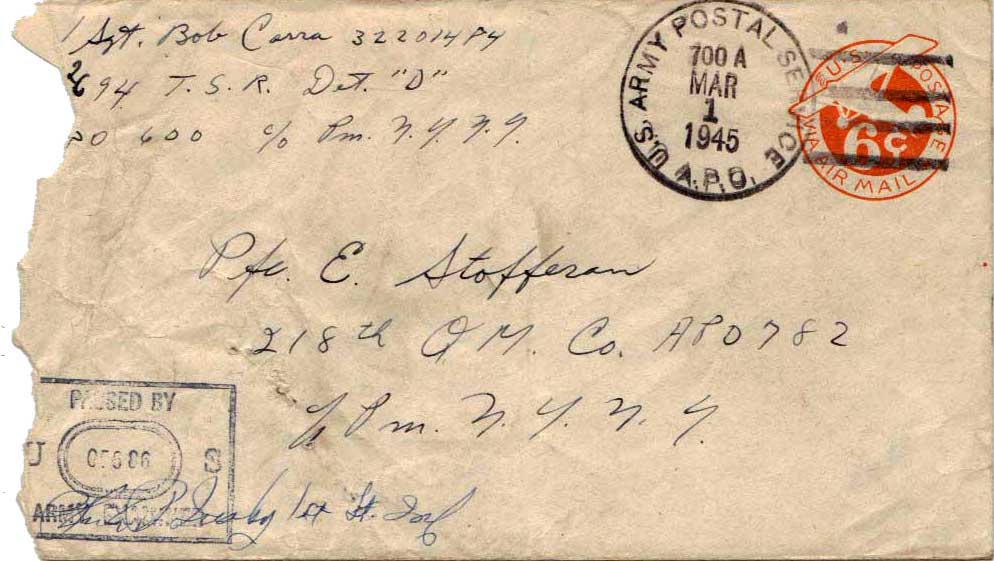 Sgt. Bob Carra 32201484
94 T.S.R. Det. "D"
600 c/o Pm. N.Y. N.Y.
U.S. ARMY POSTAL SERVICE
700 A
MAR
1
1945
A.P.O.
U.S. POSTAGE
6¢
VIA AIR MAIL
Pfc. E. Stofferan
218th Q M. Co. APO 782
c/o Pm. N.Y. N.Y.
PASSED BY
U S
ARMY EXAMINER
1st Lt. Inf